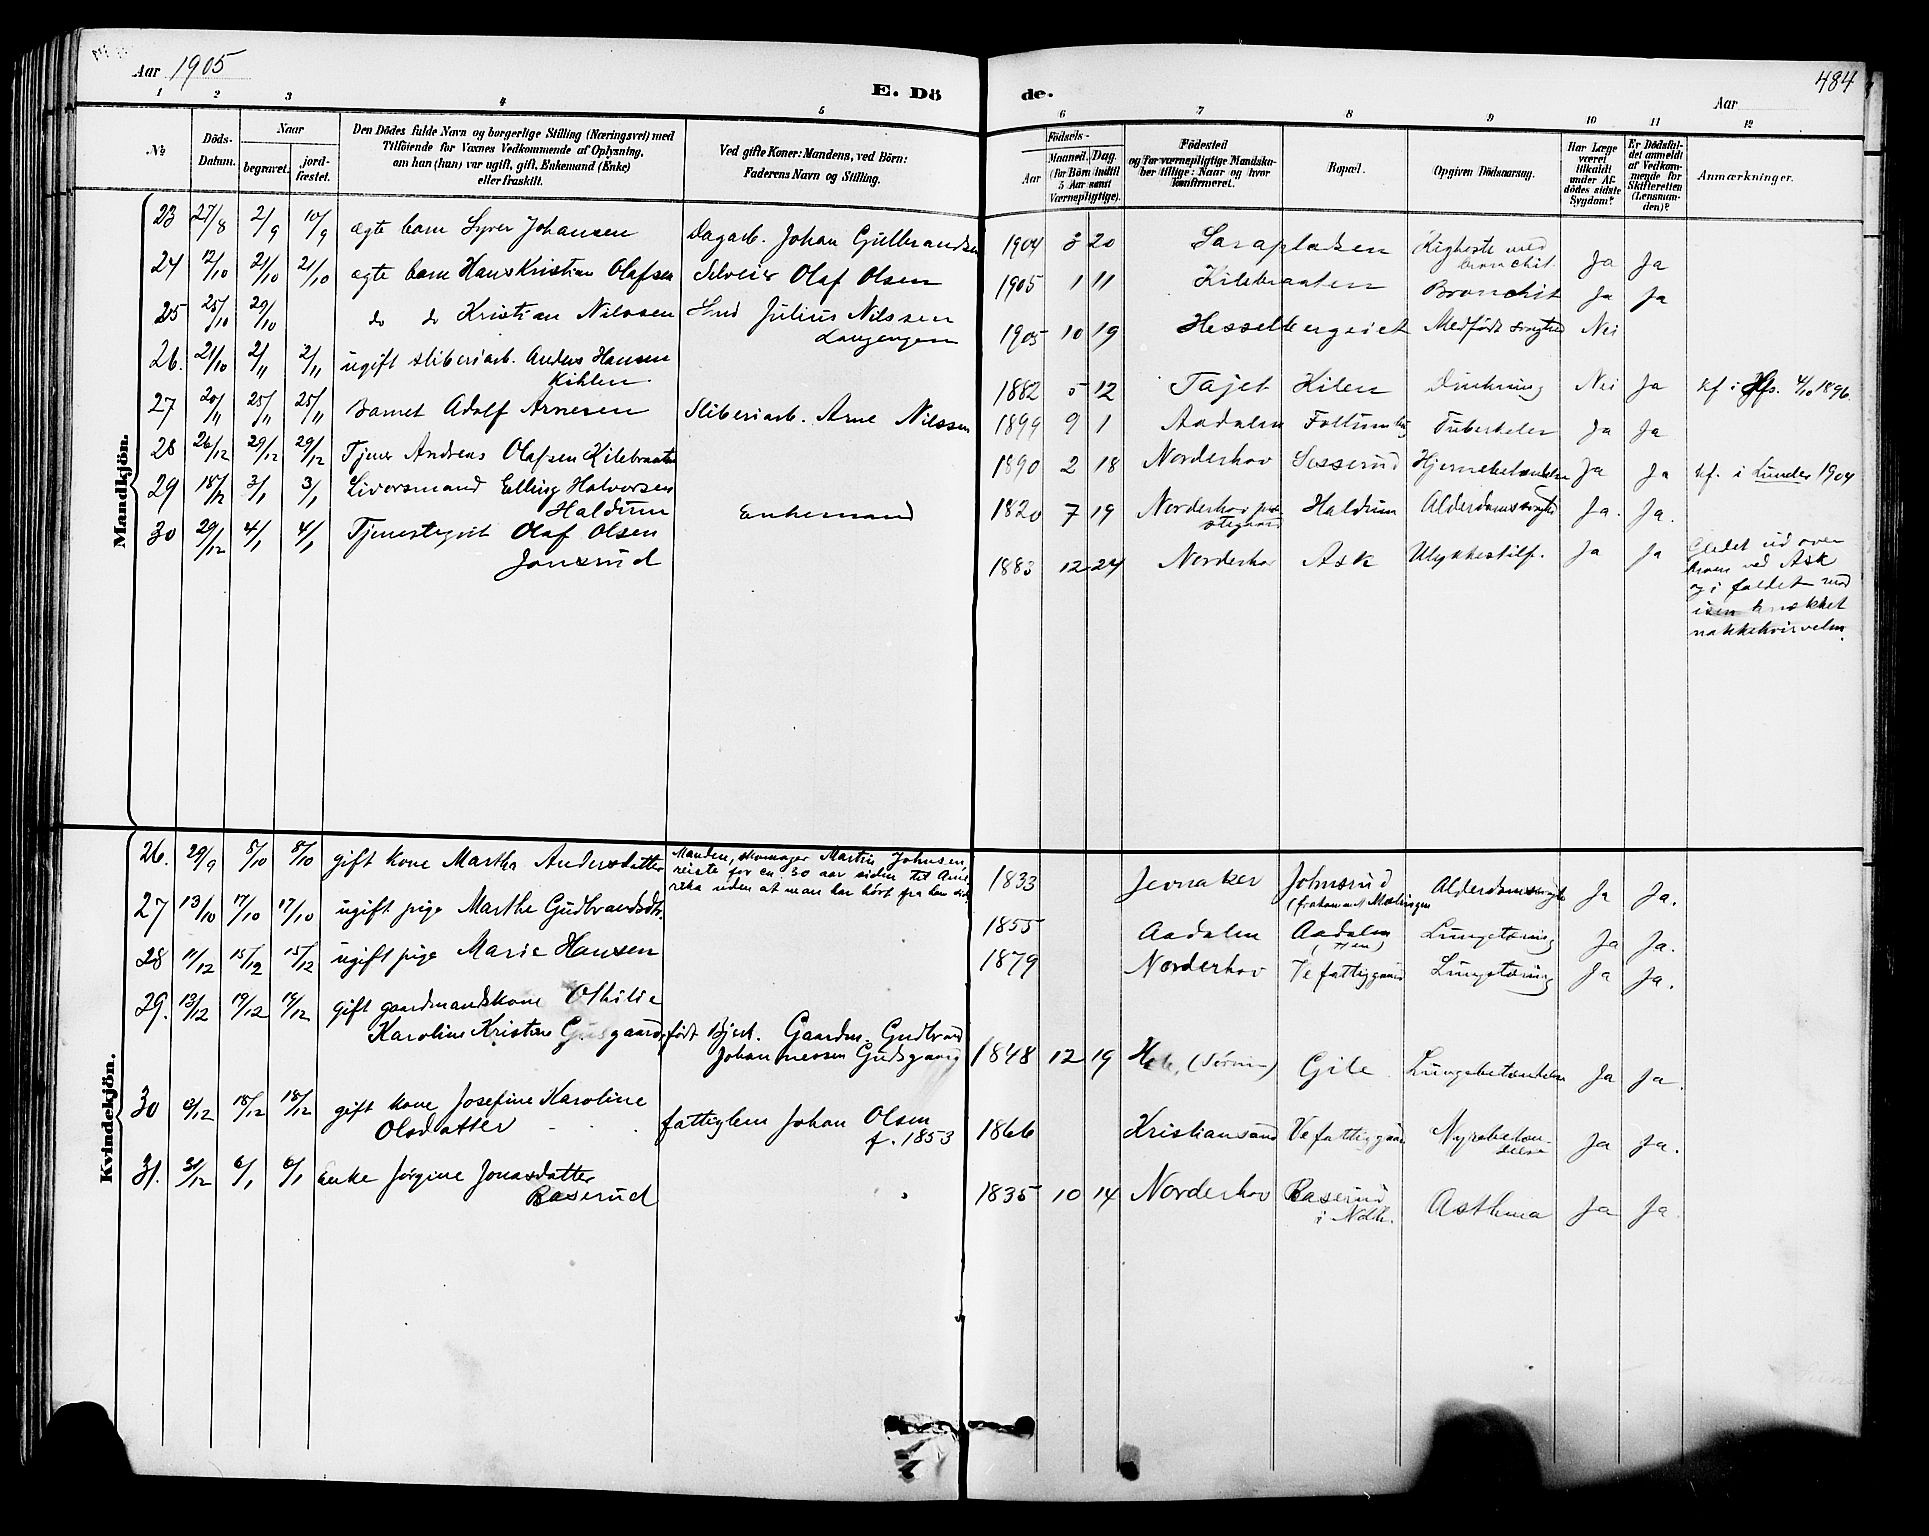 Aar 1905
E. Dö
de.
Aar
484
1 2 3 4 5 6 7 8 9 10 11 12
No
Döds-Datum.
Naar
begravet.
jord-fæstet.
Den Dödes fulde Navn og borgerlige Stilling (Næringsvei) med
Tilföiende for Voxnes Vedkommende af Oplysning,
om han (hun) var ugift, gift, Enkemand (Enke)
eller fraskilt.
Ved gifte Koner: Mandens, ved Börn:
Faderens Navn og Stilling.
Födsels-
Aar
Maaned. Dag.
(for Börn indtil
5 Aar samt
Værnepligtige).
Födested
og for værnepligtige Mandska-
ber tillige: Naar og hvor
konfirmeret.
Bopæl.
Opgiven Dödsaarsag.
Har Læge
været
tilkaldt
under Af-
dödes sidste
Sygdom?
Er Dödsfal-
det anmeldt
af Vedkom-
mende for
Skifteretten
(Lensman-
den)?
Anmærkninger.
Mandkjön.
23 27/8 2/9 10/9 ægte barn Syver Johansen Dagarb. Johan Gulbrandsen 1904 3 20 Saraplassen Kighoste med
bronchit. Ja Ja
24 12/10 21/10 21/10 ægte barn Hans Kristian Olafsen Selveier Olaf Olsen 1905 1 11 Kilebraaten Bronchit Ja Ja
25 25/10 29/10 do do Kristian Nilssen Smd Julius Nilssen
Langengen 1905 10 19 Hesselbergeiet Medfödt svaghed Nei
26. 21/10 2/11 2/11 ugift sliberiarb. Anders Hansen
Kihlen. 1882 5 12 Tajet Kilen Drukning Nei Ja kf i Hfs. 4/10 1896.
27 20/11 25/11 25/11 Barnet Adolf Arnesen Sliberiarb. Arne Nilssen 1899 9 1 Aadalen Follum Tuberkeler Ja Ja
28 26/12 29/12 29/12 Tjener Andreas Olafsen Kilebraaten 1890 2 18 Norderhov Sesserud Hjernebetændelse Ja Ja kf. i Lunder 1904
29 18/12 3/1 3/1 Livorsmand Elling Halvorsen
Haldum Enkemand 1820 7 19 Norderhov præ-
stegaard Haldum Alderdomssvaghed Ja. Ja.
30 29/12 4/1 4/1 Tjenestegut Olaf Olsen
Jonsrud 1883 12 24 Norderhov Ask Ulykkestilf. Ja Ja Gledet ud over
broen ved Ask
og i faldet mod
isen knækket
nakkehvirvelen.
Kvindekjön.
26. 29/9 8/10 8/10 gift kone Martha Andersdatter Manden, skomager Martin Johnsen,
reiste for en 30 aar siden til Ame-
rika uden at man har hört fra ham sid. 1833 Jevnaker Johnsrud
Alderdomssvaghed Ja Ja.
27 13/10 17/10 17/10 ugift pige Marthe Gudbrandsdtr. 1855 Aadalen Aadalen
Lungetæring Ja Ja.
28 11/12 15/12 15/12 ugift pige Marie Hansen 1879 Norderhov Ve fattiggaard Lungetæring Ja Ja.
29. 13/12 19/12 19/12 gift gaardmandskone Othilie
Karoline Kristine Gusgaard, født Bjerk. Gaardm. Gudbrand
Johannessen Gudsgaard 1848 12 19 Hole, Gile Lungebetændelse Ja Ja.
30 9/12 18/12 18/12 gift kone Josefine Karoline
Olsdatter fattiglem Johan Olsen
f. 1853 1866 Kristiansand Ve fattiggaard Nyrebetæn-
delse Ja Ja.
31. 31/12 6/1 6/1 Enke Jørgine Jonasdatter
Baserud 1835 10 14 Norderhov Baserud
i Ndh. Asthma Ja Ja.